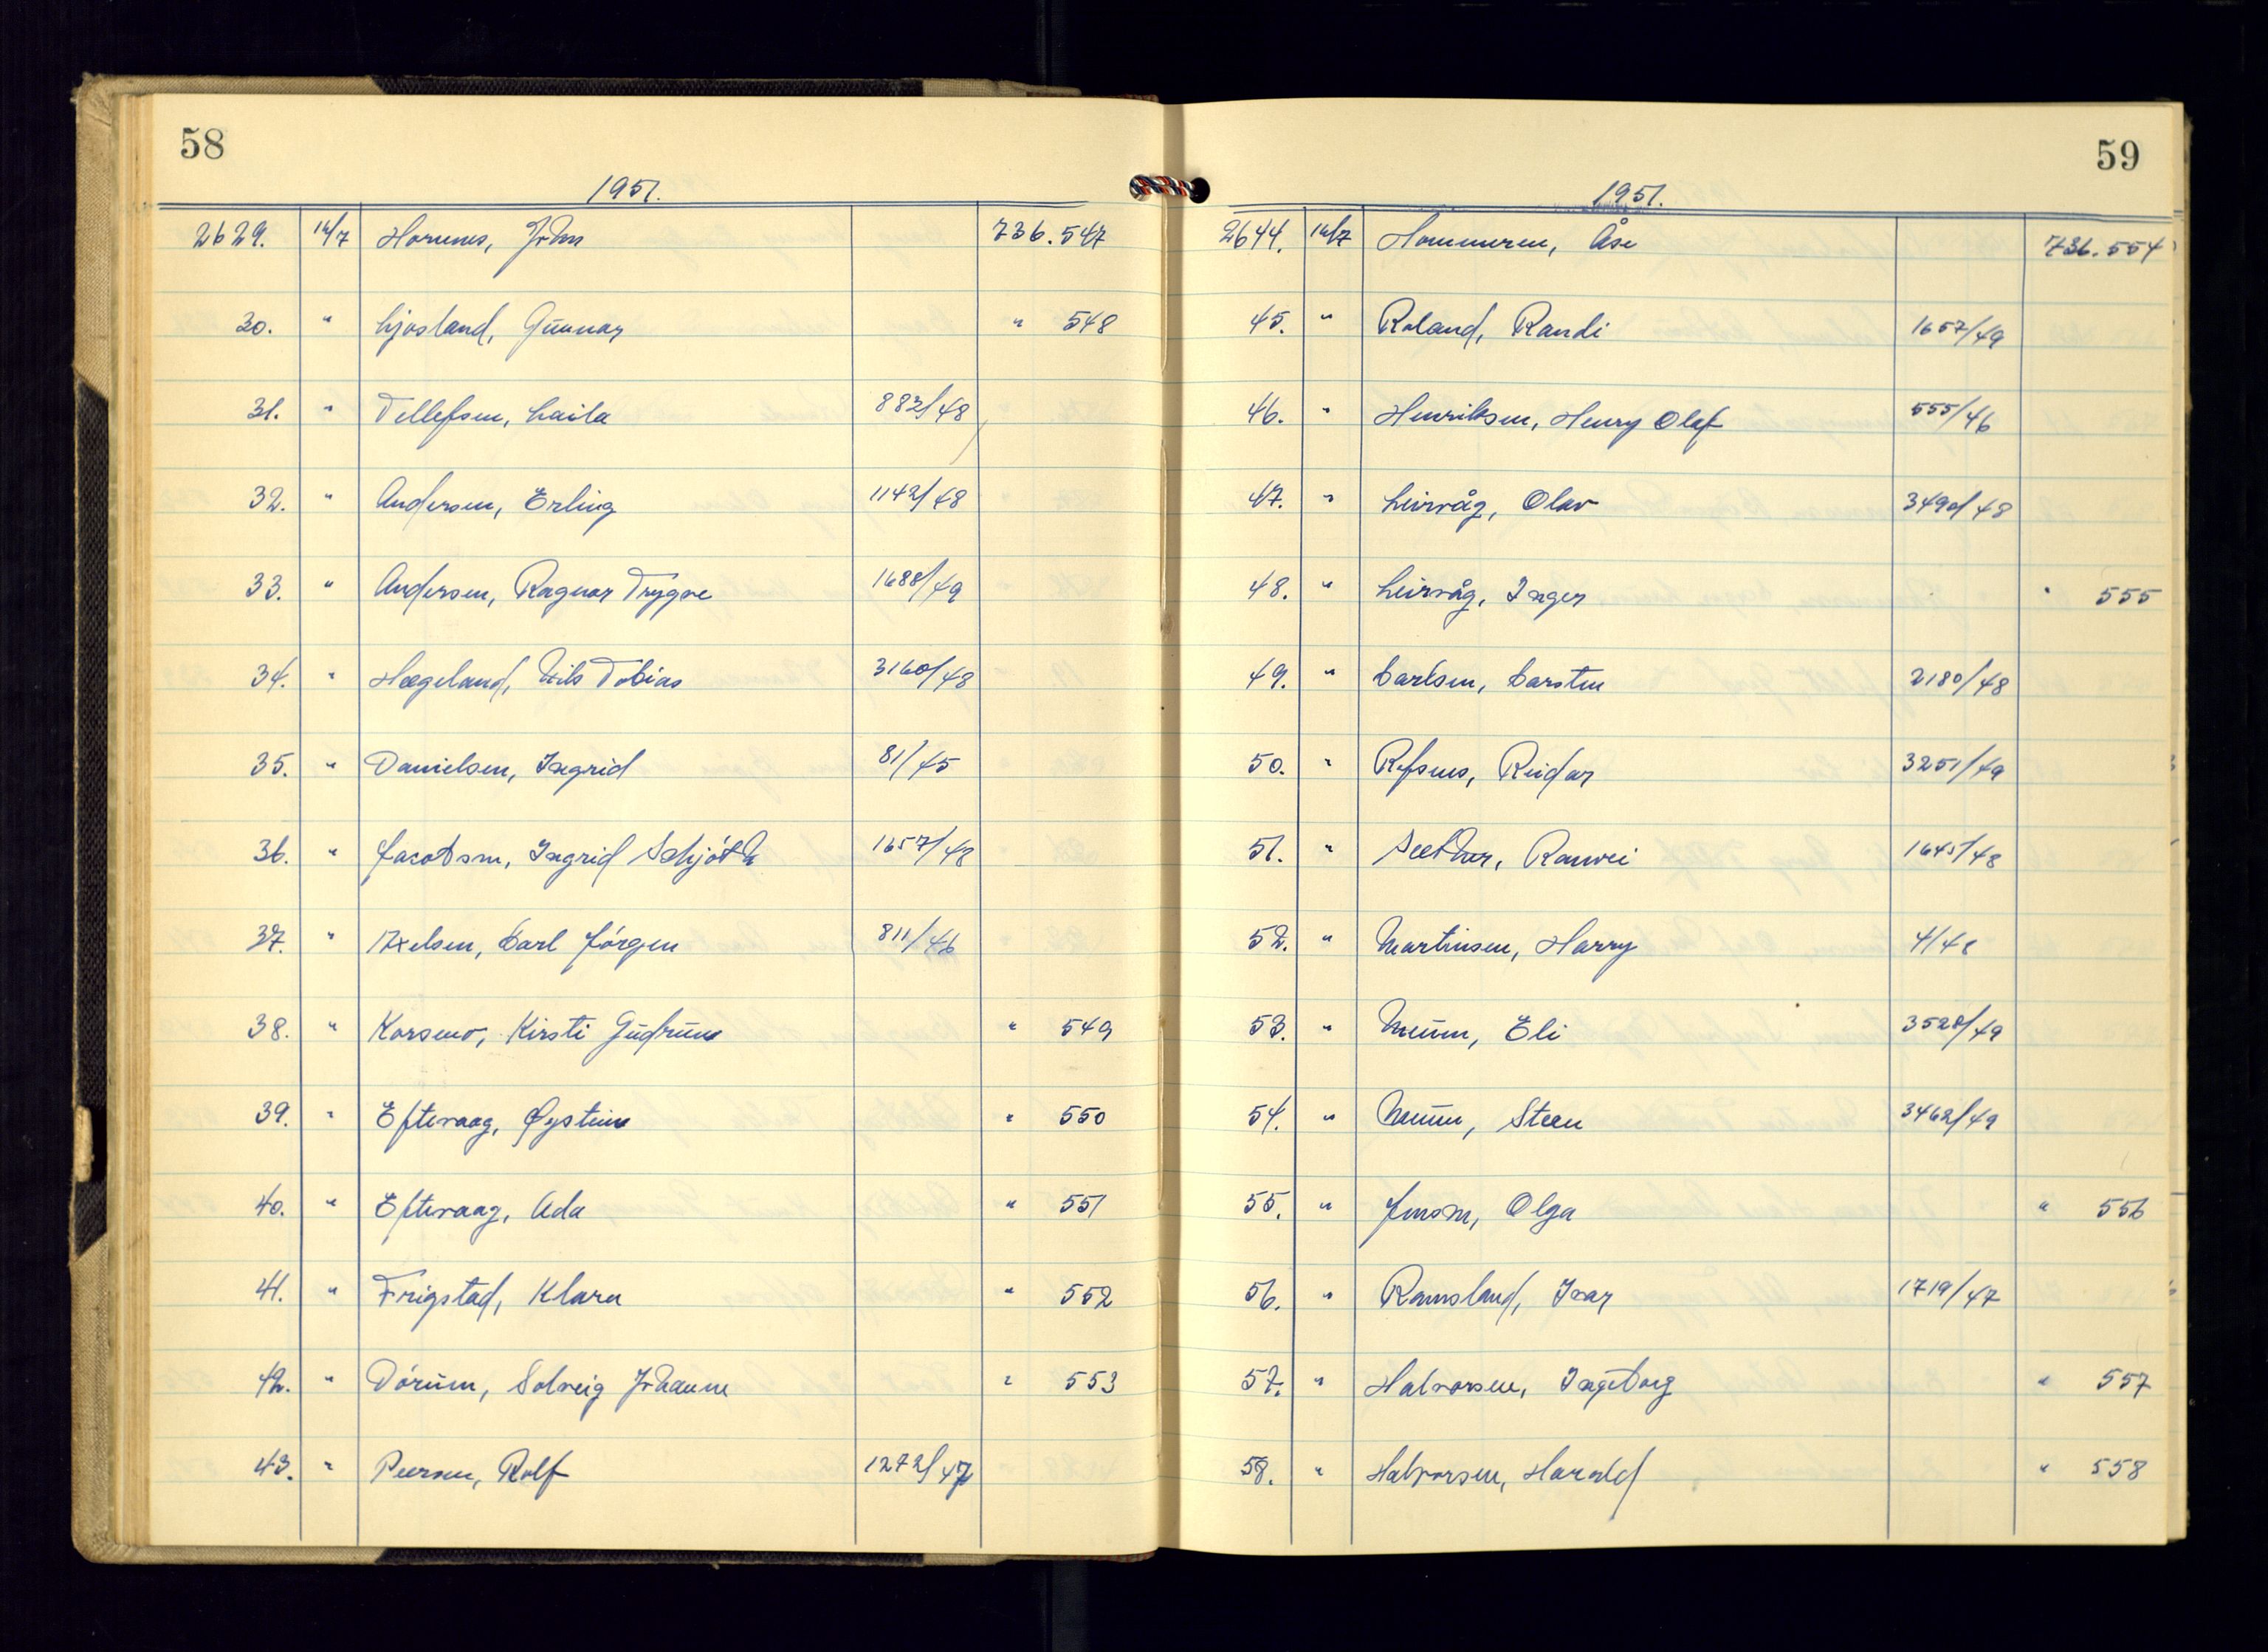 58
1951.
2629. 14/7 Hornnes, John 736.547
30. " Ljosland, Gunnar " 548
31. " Tellefsen, Laila 882/48
32. " Andersen, Erling 1142/48
33. " Andersen, Ragnar Trygve 1688/49
34. " Hægeland, Nils Tobias 3160/48
35. " Danielsen, Ingrid 81/45
36. " Jacobsen, Ingrid Schjöth 1657/48
37. " Axelsen, Carl Jörgen 811/46
38. " Korsmo, Kirsti Gudrun " 549
39. " Eftevaag, Øystein " 550
40. " Eftevaag, Ada " 551
41. " Frigstad, Klara " 552
42. " Dörum, Solveig Johanne " 553
43. " Peersen, Rolf 1272/47
59
1951.
2644. 14/7 Hommeren, Åse 736.554
45. " Roland, Randi 1657/49
46. " Henriksen, Henry Olaf 555/46
47. " Leirvåg, Olav 3490/48
48. " Leirvåg, Inger " 555
49. " Carlsen, Carsten 2180/48
50. " Refsnes, Reidar 3251/49
51. " Seether, Ranvei 1645/48
52. " Martinsen, Harry 4/48
53. " Meum, Eli 3528/49
54. " Meum, Steen 3462/49
55. " Jensen, Olga " 556
56. " Ramsland, Ivar 1719/47
57. " Halvorsen, Ingeborg " 557
58. " Halvorsen, Harald " 558